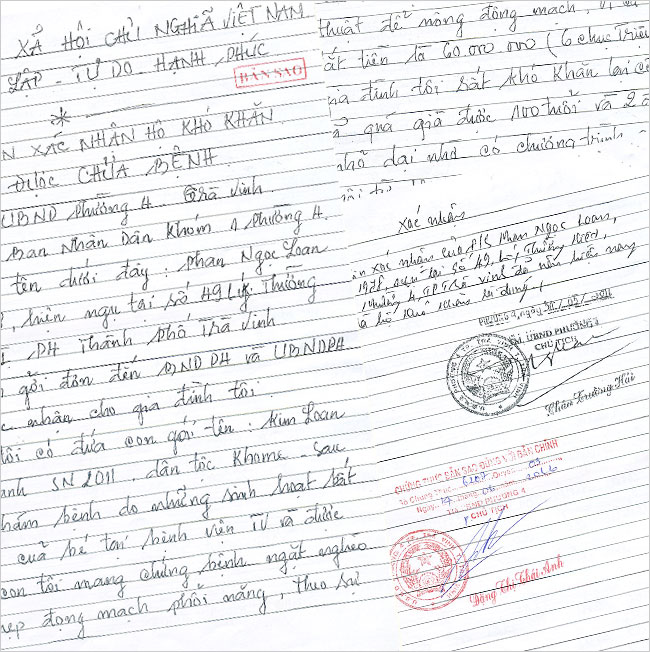 XÃ HỘI CHỦ NGHĨA VIỆT NAM
LẬP - TỰ DO. HẠNH PHÚC
BẢN SAO
N XÁC NHẬN HỘ KHÓ KHĂN
ĐƯỢC CHỮA BỆNH
UBND phường 4. Trà Vinh
Ban Nhân Dân Khóm 1 phường 4.
tên dưới đây: Phan Ngọc Loan
, hiện ngụ tại số 49 Lý Thường
PH Thành phố Trà Vinh
gởi đơn đến BND PH và UBNDPH
c nhận cho gia đình tôi.
tôi có đứa con gái tên: Kim Loan
anh SN 2011, dân tộc Khome. Sau
hám bệnh do những sinh hoạt bất
của bé tại bệnh viện TV và được
con tôi mang chứng bệnh ngặt nghèo
hẹp động mạch phổi nặng, theo sự
thuật để nông động mạch,
ắt tiền là 60.000.000 (6 chục Triệu
gia đình tôi rất khó khăn lại có
quá già được 100 tuổi và 2
nhỏ dại nhờ có chương trình
Xác nhận
xác nhận của Phan Ngọc Loan,
tại số 49, Lý Thường Kiệt,
Phường 4, TP Trà Vinh hiện nay
là hộ khó khăn
PHƯỜNG 4, ngày
TM. UBND PHƯỜNG 4
CHỦ TỊCH
Trường Hải
CHỨNG THỰC BẢN SAO ĐÚNG VỚI BẢN CHÍNH
Số Chứng Thực Quyển
Ngày Tháng
TM. UBND PHƯỜNG 4
CHỦ TỊCH
Đặng Thị Thái Anh